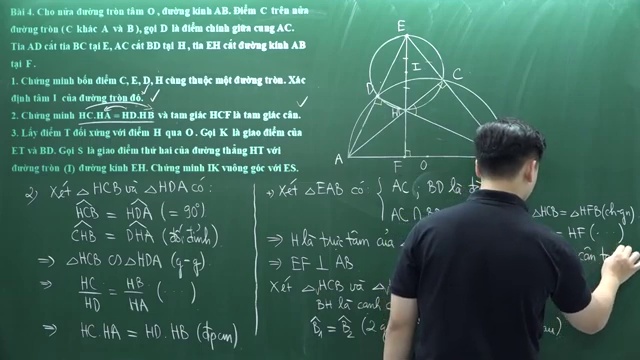 Bài 4. Cho nửa đường tròn tâm O , đường kính AB. Điểm C trên nửa
đường tròn (C khác A và B ), gọi D là điểm chính giữa cung AC.
Tia AD cắt tia BC tại E, AC cắt BD tại H , tia EH cắt đường kính AB
tại F .
1. Chứng minh bốn điểm C, E, D, H cùng thuộc một đường tròn. Xác
định tâm I của đường tròn đó.
2. Chứng minh HC.HA = HD.HB và tam giác HCF là tam giác cân.
3. Lấy điểm T đối xứng với điểm H qua O . Gọi K là giao điểm của
ET và BD. Gọi S là giao điểm thứ hai của đường thẳng HT với
đường tròn (I) đường kính EH. Chứng minh IK vuông góc với ES.
E
I
C
D
H
A
F
O
2) Xét △HCB và △HDA có:
HCB = HDA (= 90°)
CHB = DHA (đối đỉnh)
⇒ △HCB ∽ △HDA (g-g)
⇒ HC/HD = HB/HA (...)
⇒ HC.HA = HD.HB (đpcm)
+) Xét △EAB có: { AC ; BD là
AC ∩
⇒ H là trực tâm của
⇒ EF ⊥ AB
Xét △HCB và
BH là cạnh
B₁ = B₂ (2 g
△HCB = △HFB (ch-gn)
= HF (...)
cân